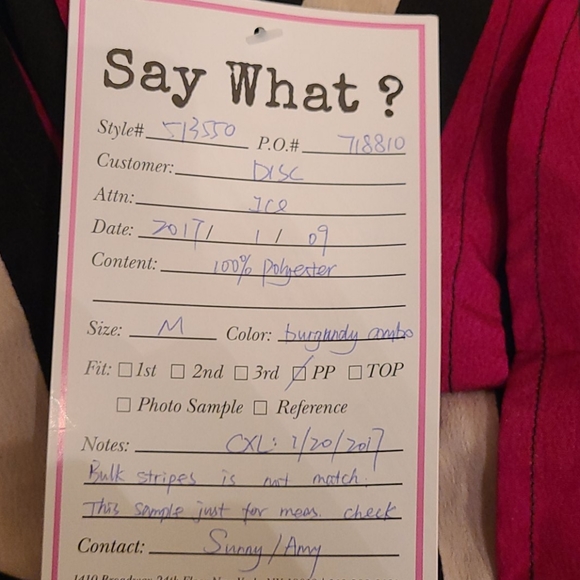 Say What ?
Style# 513550 P.O.# 718810
Customer: DISC
Attn: Ice
Date: 2017/ 1 / 09
Content: 100% polyester
Size: M Color: burgundy combo
Fit: 1st 2nd 3rd PP TOP
Photo Sample Reference
Notes: CXL: 1/20/2017
Bulk stripes is not match.
This sample just for meas. check
Contact: Sunny/Amy
1410 Broadway 24th